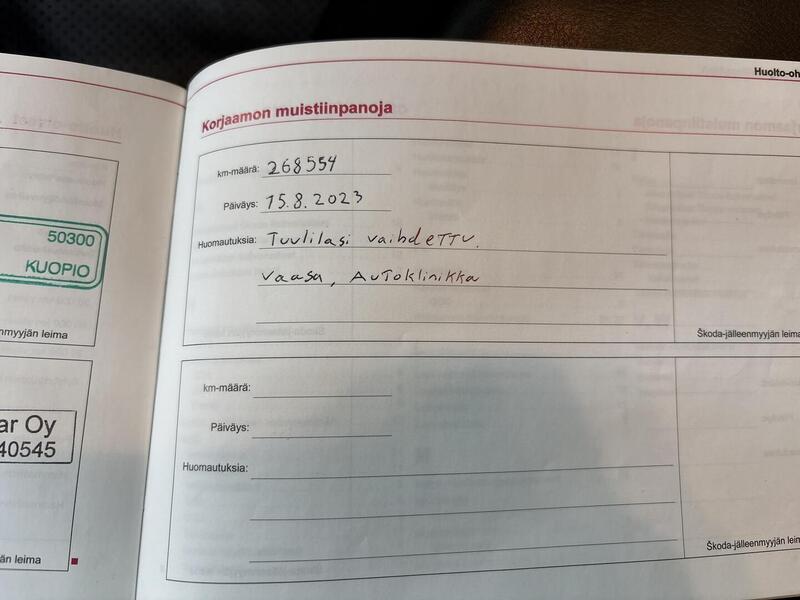 Huolto-oh
50300
KUOPIO
nmyyjän leima
ar Oy
40545
än leima
Korjaamon muistiinpanoja
km-määrä: 268554
Päiväys: 15.8.2023
Huomautuksia: Tuulilasi vaihdettu.
Vaasa, Autoklinikka
Škoda-jälleenmyyjän leima
km-määrä:
Päiväys:
Huomautuksia:
Škoda-jälleenmyyjän leim